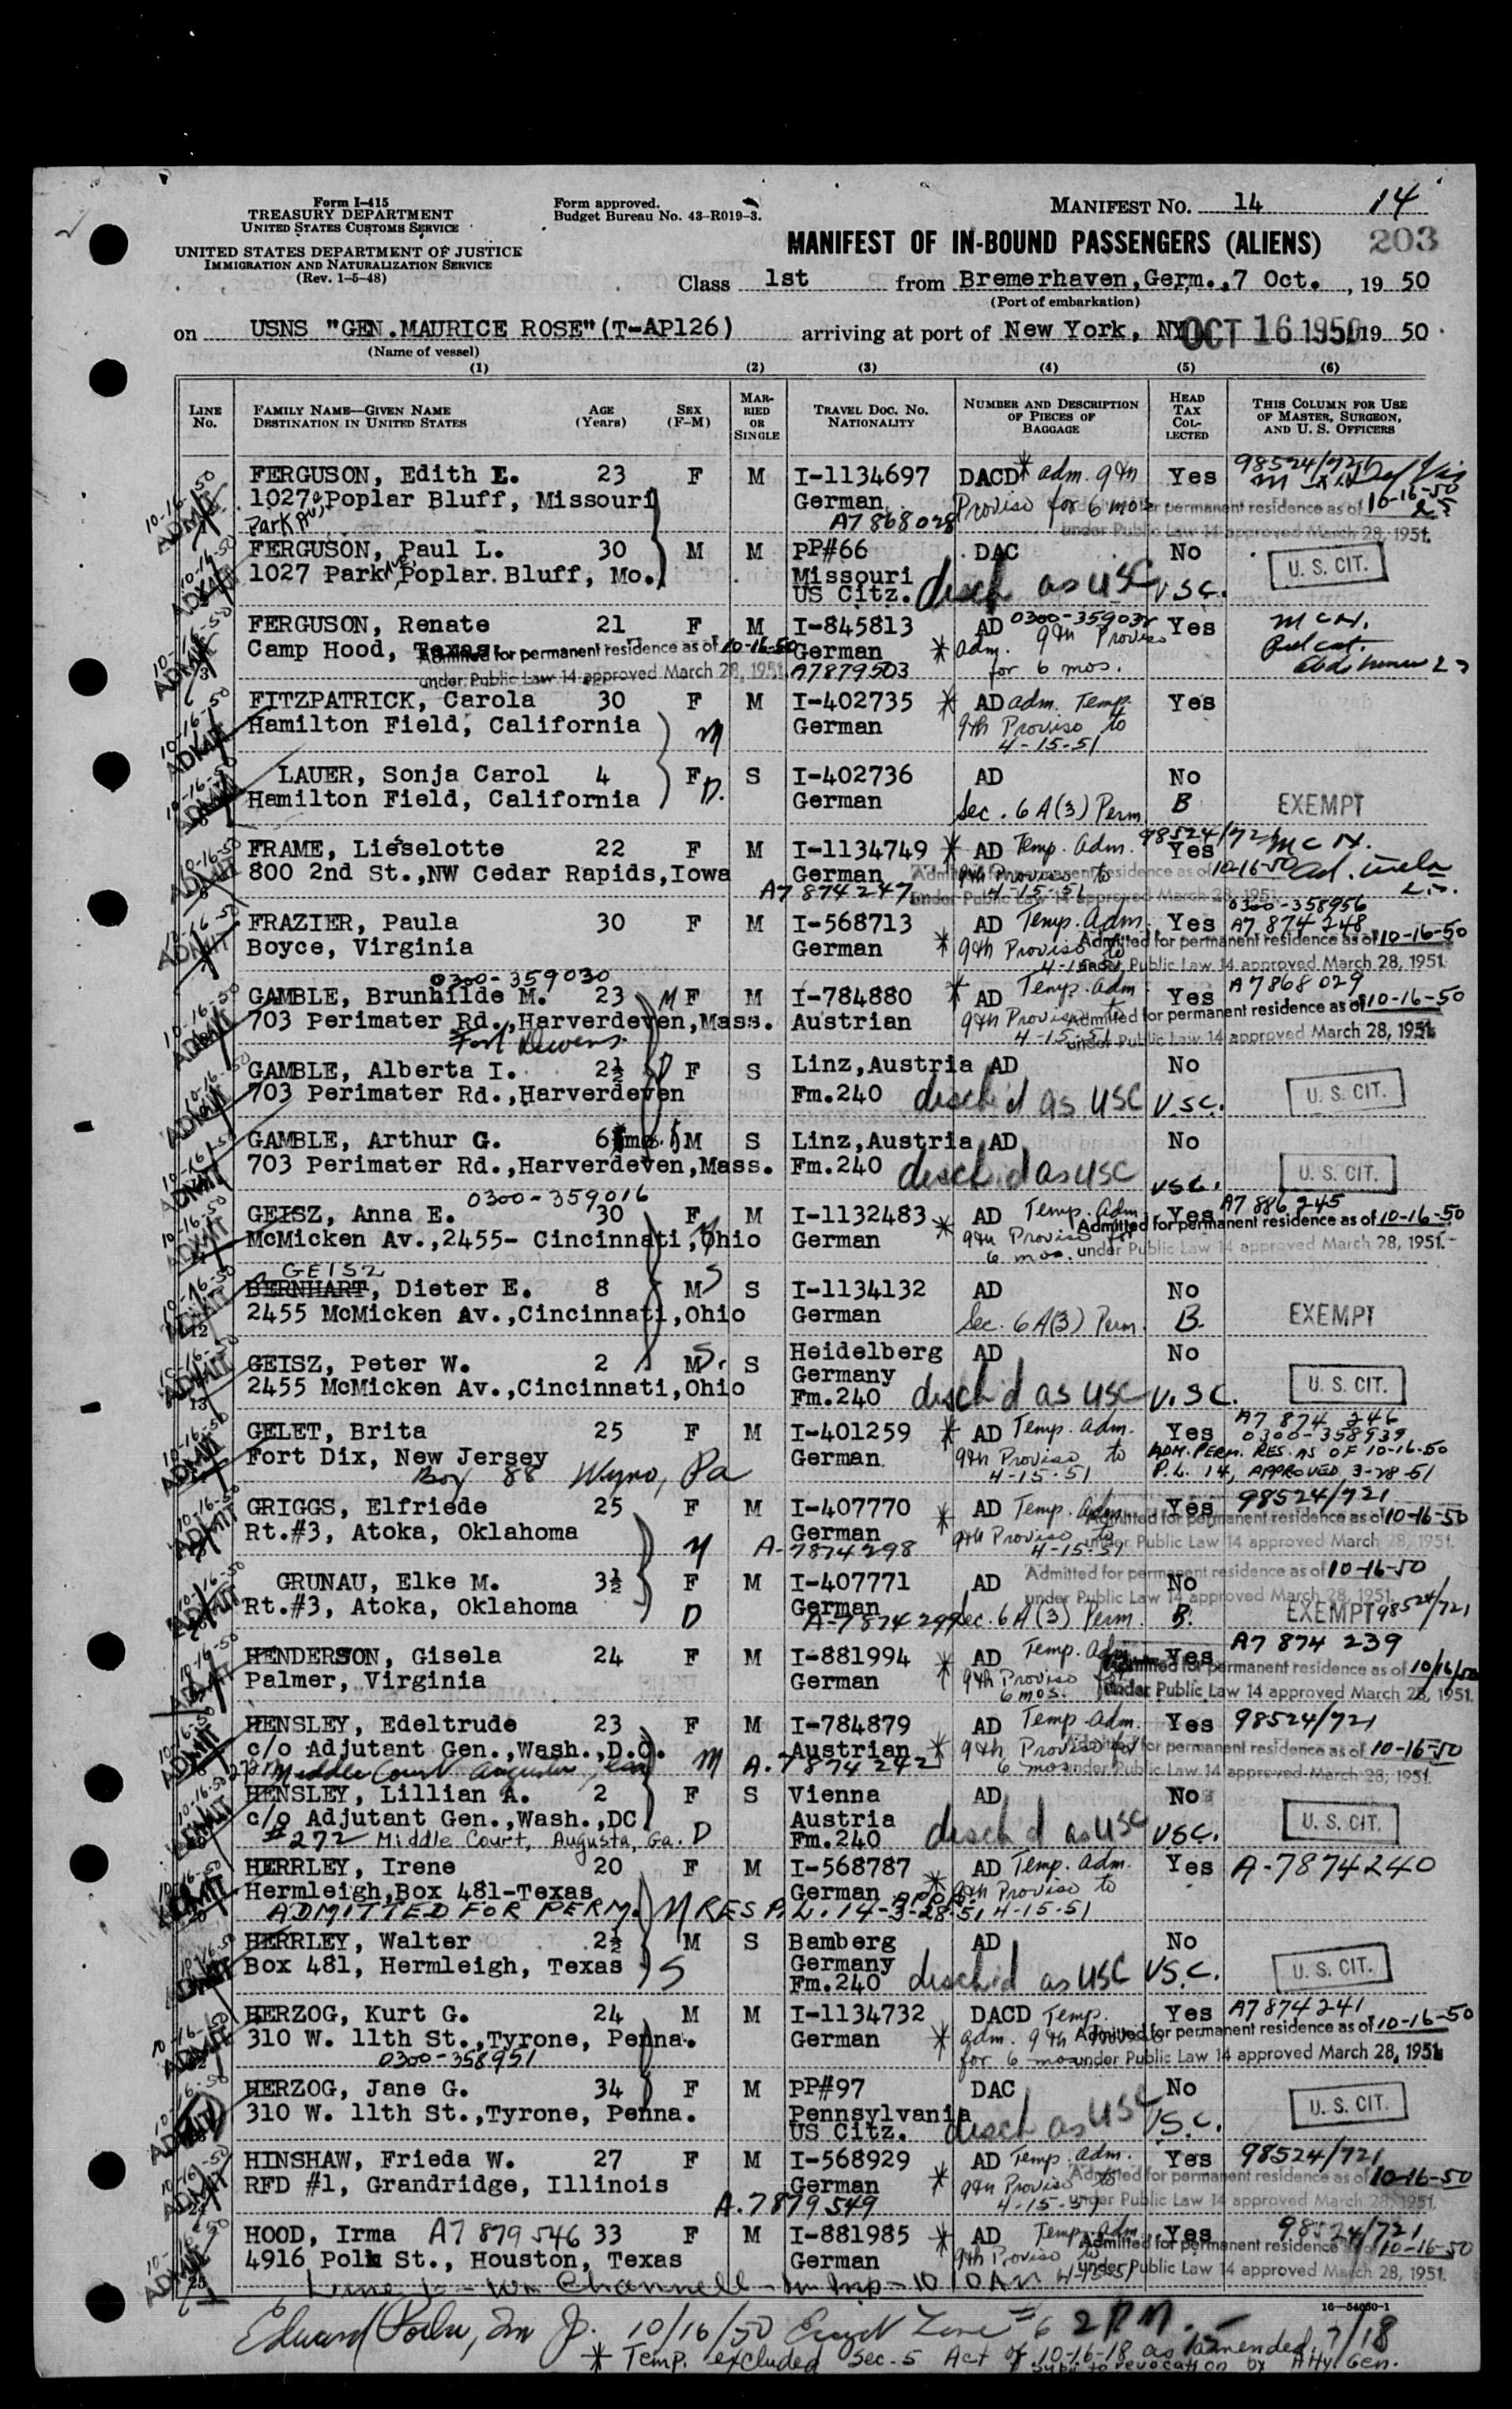 Form I-415
TREASURY DEPARTMENT
UNITED STATES CUSTOMS SERVICE
UNITED STATES DEPARTMENT OF JUSTICE
IMMIGRATION AND NATURALIZATION SERVICE
(Rev. 1-5-48)
Form approved.
Budget Bureau No. 43-R019-3.
MANIFEST NO. 14 14
MANIFEST OF IN-BOUND PASSENGERS (ALIENS) 203
Class 1st from Bremerhaven, Germ., 7 Oct., 19 50
(Port of embarkation)
on USNS "GEN.MAURICE ROSE"(T-AP126) arriving at port of New York, NY OCT 16 1950 19 50
(Name of vessel)
(1) (2) (3) (4) (5) (6)
LINE No. FAMILY NAME—GIVEN NAME DESTINATION IN UNITED STATES AGE (Years) SEX (F-M) MARRIED OR SINGLE TRAVEL DOC. NO. NATIONALITY NUMBER AND DESCRIPTION OF PIECES OF BAGGAGE HEAD TAX COLLECTED THIS COLUMN FOR USE OF MASTER, SURGEON, AND U. S. OFFICERS
FERGUSON, Edith E. 23 F M I-1134697 DACD * adm. 9th Yes 98524/721
1027 Poplar Bluff, Missouri German Proviso for 6 mos permanent residence as of 10-16-50
Park Av. A7 868 028 under Public Law 14 approved March 28, 1951.
FERGUSON, Paul L. 30 M M PP#66 DAC No U. S. CIT.
1027 Park Av Poplar Bluff, Mo. Missouri
US Citz. disch as USC U.S.C.
FERGUSON, Renate 21 F M I-845813 AD 0300-359032 Yes
Camp Hood, Texas German * adm. 9th Proviso
Admitted for permanent residence as of 10-16-50
under Public Law 14 approved March 28, 1951. A7879503 for 6 mos.
FITZPATRICK, Carola 30 F M I-402735 * AD adm. Temp. Yes
Hamilton Field, California M German 9th Proviso to
4-15-51
LAUER, Sonja Carol 4 F S I-402736 AD No
Hamilton Field, California D. German Sec. 6A(3) Perm. B EXEMPT
FRAME, Lieselotte 22 F M I-1134749 * AD Temp. Adm. Yes 98524/721
800 2nd St.,NW Cedar Rapids,Iowa German 9th Proviso to 10-16-50
A7 874 247 4-15-51
FRAZIER, Paula 30 F M I-568713 AD Temp. Adm. Yes 0300-358956
A7 874 248
Boyce, Virginia German * 9th Proviso to Admitted for permanent residence as of 10-16-50
4-15-51 under Public Law 14 approved March 28, 1951
0300-359030
GAMBLE, Brunhilde M. 23 M F M I-784880 * AD Temp. adm Yes A7868029
703 Perimater Rd.,Harverdeven,Mass. Austrian 9th Proviso to Admitted for permanent residence as of 10-16-50
Fort Devens. 4-15-51 under Public Law 14 approved March 28, 1951
GAMBLE, Alberta I. 2½ D F S Linz,Austria AD No
703 Perimater Rd.,Harverdeven Fm.240 disch'd as USC U.S.C. U. S. CIT.
GAMBLE, Arthur G. 6 mo. M S Linz,Austria AD No
703 Perimater Rd.,Harverdeven,Mass. Fm.240 disch'd as USC USC. U. S. CIT.
0300-359016
GEISZ, Anna E. 30 F M I-1132483 * AD Temp. Adm Yes A7 886 245
McMicken Av.,2455- Cincinnati,Ohio German 9th Proviso for Admitted for permanent residence as of 10-16-50
6 mos. under Public Law 14 approved March 28, 1951.
GEISZ
BERNHART, Dieter E. 8 M S S I-1134132 AD No
2455 McMicken Av.,Cincinnati,Ohio German Sec. 6A(3) Perm. B. EXEMPT
GEISZ, Peter W. 2 M S. S Heidelberg AD No
2455 McMicken Av.,Cincinnati,Ohio Germany
Fm.240 disch'd as USC U.S.C. U. S. CIT.
GELET, Brita 25 F M I-401259 * AD Temp. adm. Yes A7 874 246
0300-358939
Fort Dix, New Jersey German 9th Proviso to ADM. PERM. RES. AS OF 10-16-50
Box 88 Wyno, Pa 4-15-51 P.L. 14, APPROVED 3-28-51
GRIGGS, Elfriede 25 F M I-407770 * AD Temp. Adm. Yes 98524/721
Rt.#3, Atoka, Oklahoma German 9th Proviso to Admitted for permanent residence as of 10-16-50
M A-7874298 4-15-51 under Public Law 14 approved March 28, 1951.
GRUNAU, Elke M. 3½ F M I-407771 AD No Admitted for permanent residence as of 10-16-50
under Public Law 14 approved March 28, 1951.
Rt.#3, Atoka, Oklahoma D German Sec. 6A(3) Perm. B. EXEMPT 98524/721
A-7874299
HENDERSON, Gisela 24 F M I-881994 * AD Temp. Adm Yes A7 874 239
Palmer, Virginia German 9th Proviso for Admitted for permanent residence as of 10/16/50
6 mos. under Public Law 14 approved March 28, 1951.
HENSLEY, Edeltrude 23 F M I-784879 AD Temp. adm. Yes 98524/721
c/o Adjutant Gen.,Wash.,D.C. Austrian * 9th Proviso for permanent residence as of 10-16-50
272 Middle Court Augusta, Ga M A.7874242 6 mos under Public Law 14 approved March 28, 1951.
HENSLEY, Lillian A. 2 F S Vienna AD No
c/o Adjutant Gen.,Wash.,DC Austria
#272 Middle Court, Augusta, Ga. D Fm.240 disch'd as USC USC. U. S. CIT.
HERRLEY, Irene 20 F M I-568787 * AD Temp. Adm. Yes A-7874240
Hermleigh,Box 481-Texas German 9th Proviso to
ADMITTED FOR PERM. M RES P.L. 14-3-28-51 4-15-51
HERRLEY, Walter 2½ M S Bamberg AD No
Box 481, Hermleigh, Texas S Germany
Fm.240 disch'd as USC U.S.C. U. S. CIT.
HERZOG, Kurt G. 24 M M I-1134732 DACD Temp. Yes A7874241
310 W. 11th St.,Tyrone, Penna. German * adm. 9th Admitted for permanent residence as of 10-16-50
0300-358951 for 6 mos under Public Law 14 approved March 28, 1951
HERZOG, Jane G. 34 F M PP#97 DAC No
310 W. 11th St.,Tyrone, Penna. Pennsylvania
US Citz. disch as USC U.S.C. U. S. CIT.
HINSHAW, Frieda W. 27 F M I-568929 * AD Temp. adm. Yes 98524/721
RFD #1, Grandridge, Illinois German 9th Proviso to Admitted for permanent residence as of 10-16-50
A.7879549 4-15-51 under Public Law 14 approved March 28, 1951.
HOOD, Irma A7 879 546 33 F M I-881985 * AD Temp. adm Yes 98524/721
4916 Polk St., Houston, Texas German 9th Proviso to Admitted for permanent residence as of 10-16-50
4-15-51 under Public Law 14 approved March 28, 1951.
16—54060-1
10/16/50 2 P.M.
* Temp. excluded Sec. 5 Act of 10-16-18 as amended.
Subj. to revocation by Atty. Gen.